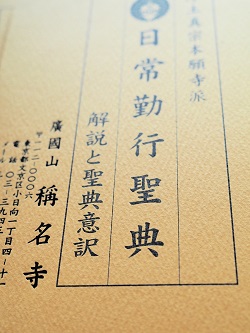 土真宗本願寺派
日常勤行聖典
解説と聖典意訳
廣國山 稱名寺
〒一一二-〇〇〇六
東京都文京区小日向一丁目四-十一
電話 〇三-三九四三
メール